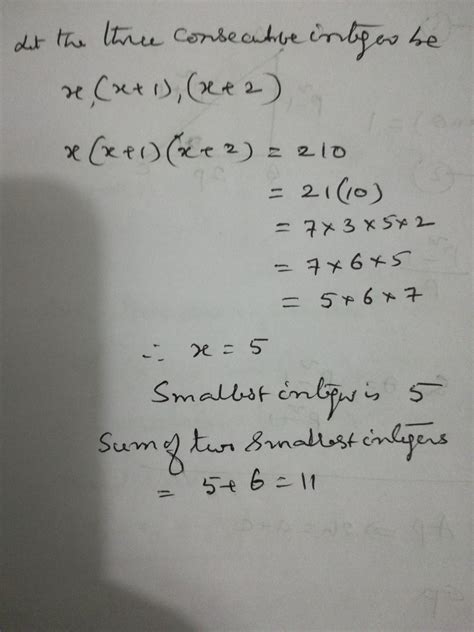 Let the three consecutive integers be
x, (x+1), (x+2)
x(x+1)(x+2) = 210
= 21(10)
= 7×3×5×2
= 7×6×5
= 5×6×7
∴ x = 5
Smallest integer is 5
Sum of two smallest integers
= 5+6 = 11